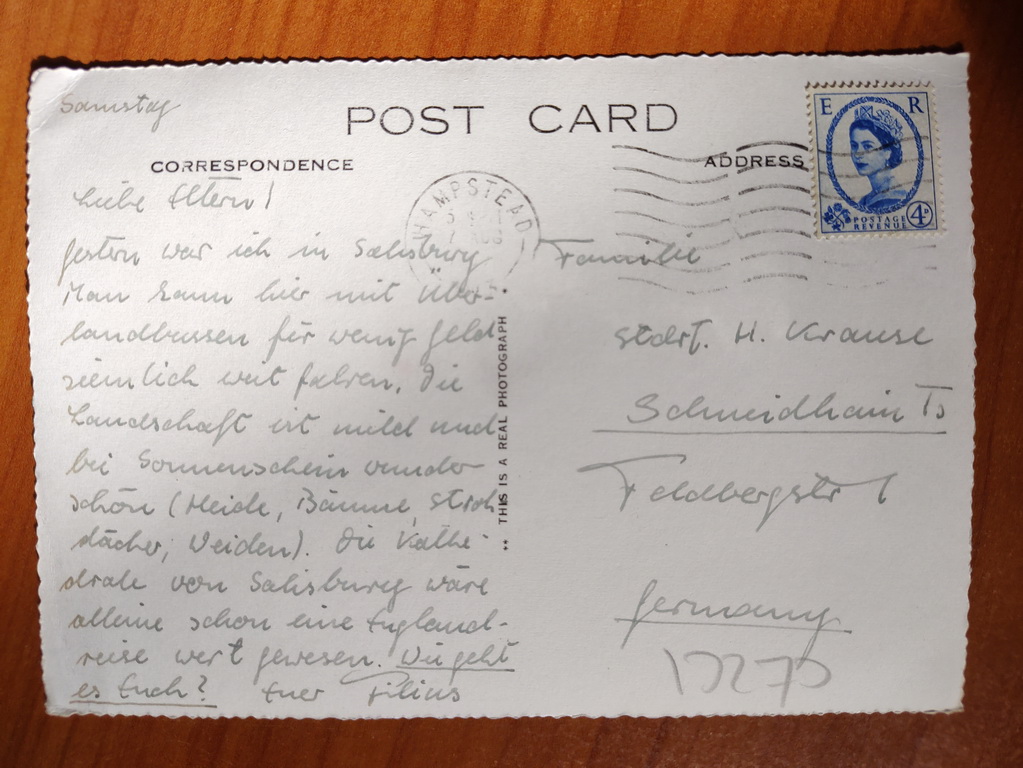 Samstag
POST CARD
CORRESPONDENCE
ADDRESS
E R
POSTAGE
REVENUE
4D
HAMPSTEAD
Liebe Eltern!
gestern war ich in Salisbury
Man kann hier mit Über-
landbussen für wenig Geld
ziemlich weit fahren. Die
Landschaft ist mild und
bei Sonnenschein wunder
schön (Heide, Bäume, Stroh
dächer, Weiden). Die Kathe-
drale von Salisbury wäre
alleine schon eine England-
reise wert gewesen. Wie geht
es Euch? Euer Filius
THIS IS A REAL PHOTOGRAPH
Familie
H. Krause
Schneidhain Ts
Feldbergstr 1
Germany